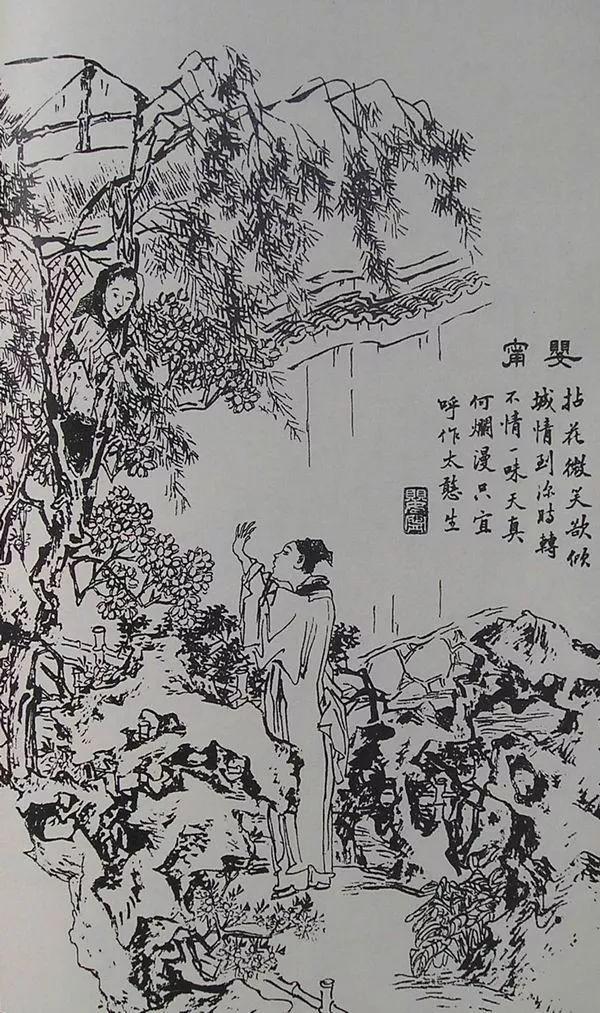 嬰甯
拈花微笑欲傾
城情到深時轉
不情一味天真
何爛漫只宜
呼作太憨生